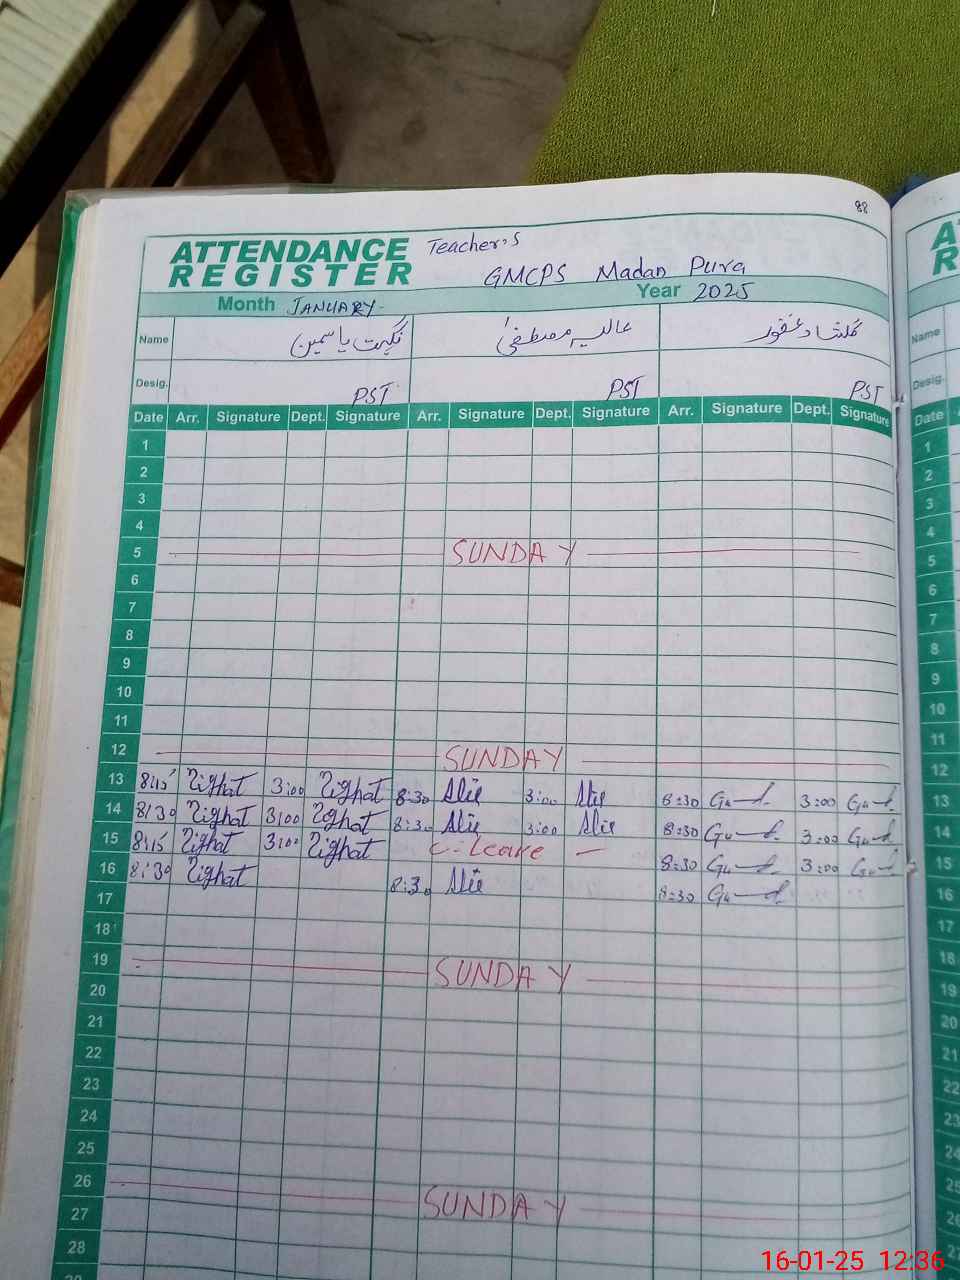 88
ATTENDANCE REGISTER Teacher's
GMCPS Madan Pura
Month JANUARY Year 2025
Name نگہت یاسمین عالیہ مصطفیٰ گلشاد غفور
Desig. PST PST PST
Date Arr. Signature Dept. Signature Arr. Signature Dept. Signature Arr. Signature Dept. Signature
1
2
3
4
5 SUNDAY
6
7
8
9
10
11
12 SUNDAY
13 8:15 Nighat 3:00 Nighat 8:30 3:00 8:30 3:00
14 8:30 Nighat 3:00 Nighat 8:30 3:00 8:30 3:00
15 8:15 Nighat 3:00 Nighat C. Leave — 8:30 3:00
16 8:30 Nighat 8:30 8:30
17
18
19 SUNDAY
20
21
22
23
24
25
26 SUNDAY
27
28
Name
Desig.
Date
1
2
3
4
5
6
7
8
9
10
11
12
13
14
15
16
17
18
19
20
21
22
23
24
25
26
16-01-25 12:36